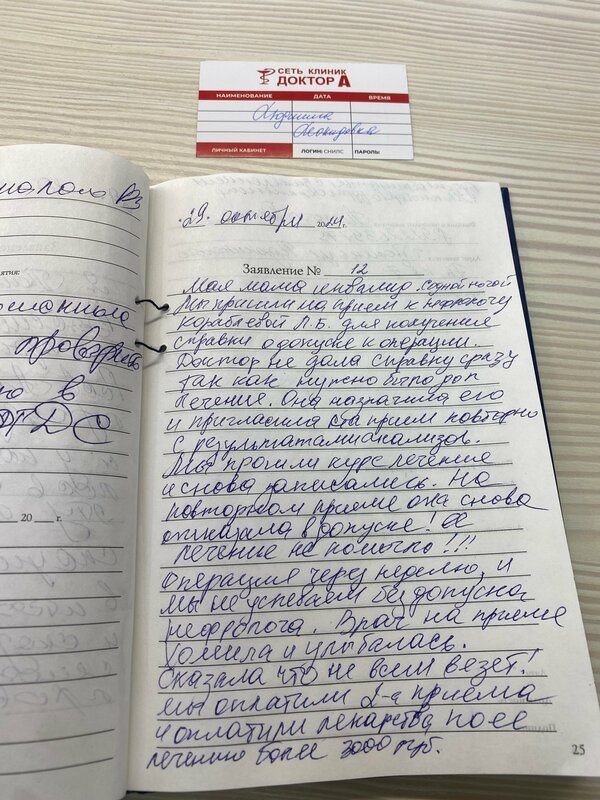 СЕТЬ КЛИНИК
ДОКТОР А
НАИМЕНОВАНИЕ ДАТА ВРЕМЯ
Людмила
Леонидовна
ЛИЧНЫЙ КАБИНЕТ ЛОГИН: СНИЛС ПАРОЛЬ:
29. октября 2024г.
Заявление № 12
Моя мама инвалид с одной ногой
Мы пришли на прием к нефрологу
Кораблевой Л.Б. для получения
справки о допуске к операции.
Доктор не дала справку сразу
так как нужно было доп
лечение. Она назначила его
и пригласила на прием повторно
с результатами анализов.
Мы прошли курс лечения
и снова записались. На
повторном приеме она снова
отказала в допуске! Её
лечение не помогло!!!
Операция через неделю, и
мы не успеваем без допуска
нефролога. Врач на приеме
хамила и улыбалась.
Сказала что не всем везет!
мы оплатили 2-а приема
и оплатили лекарства по ее
лечению более 3000 руб.
25
ятия:
20 г.